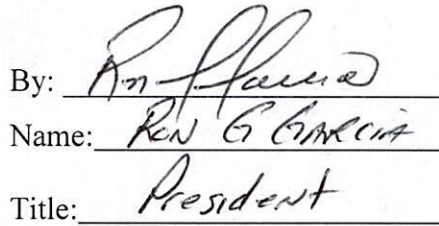 By: Ron G Garcia
Name: RON G GARCIA
Title: President